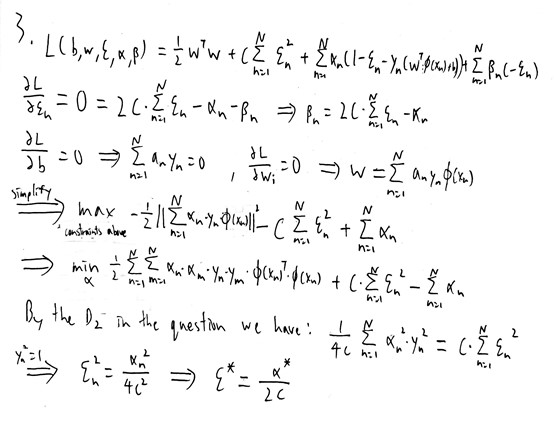 3. L(b,w,ξ,α,β) = 1/2 wᵀw + C∑_{n=1}^{N} ξ_n² + ∑_{n=1}^{N} α_n(1-ξ_n-y_n(wᵀφ(x_n)+b)) + ∑_{n=1}^{N} β_n(-ξ_n)
∂L/∂ξ_n = 0 = 2C·∑_{n=1}^{N} ξ_n - α_n - β_n ⇒ β_n = 2C·∑_{n=1}^{N} ξ_n - α_n
∂L/∂b = 0 ⇒ ∑_{n=1}^{N} a_n y_n = 0 , ∂L/∂w_i = 0 ⇒ w = ∑_{n=1}^{N} a_n y_n φ(x_n)
simplify ⇒ max_{constraints above} -1/2 ||∑_{n=1}^{N} α_n·y_n·φ(x_n)||² - C∑_{n=1}^{N} ξ_n² + ∑_{n=1}^{N} α_n
⇒ min_α 1/2 ∑_{n=1}^{N} ∑_{m=1}^{N} α_n·α_m·y_n·y_m·φ(x_n)ᵀ·φ(x_n) + C·∑_{n=1}^{N} ξ_n² - ∑_{n=1}^{N} α_n
By the D₂ in the question we have: 1/4C ∑_{n=1}^{N} α_n²·y_n² = C·∑_{n=1}^{N} ξ_n²
y_n²=1 ⇒ ξ_n² = α_n²/4C² ⇒ ξ* = α*/2C